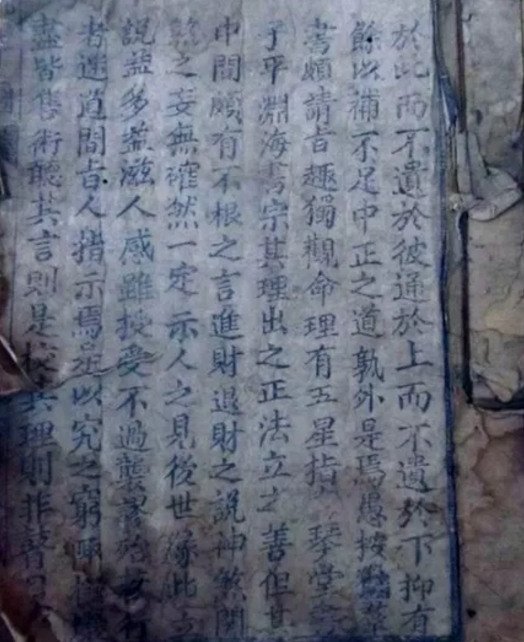 於此而不遺於彼通於上而不遺於下抑有
餘以補不足中正之道孰外是焉愚按
書頗請旨趣獨觀命理有五星指琴堂
子平淵海書宗其理出之正法立才善但其
中間頗有不根之言進財退財之說神煞
之妄無確然一定示人之見後世緣此
說益多益滋人感雖授受不過襲
者遇道間旨人指示焉以究之窮
盡皆售術聽其言則是其理則非